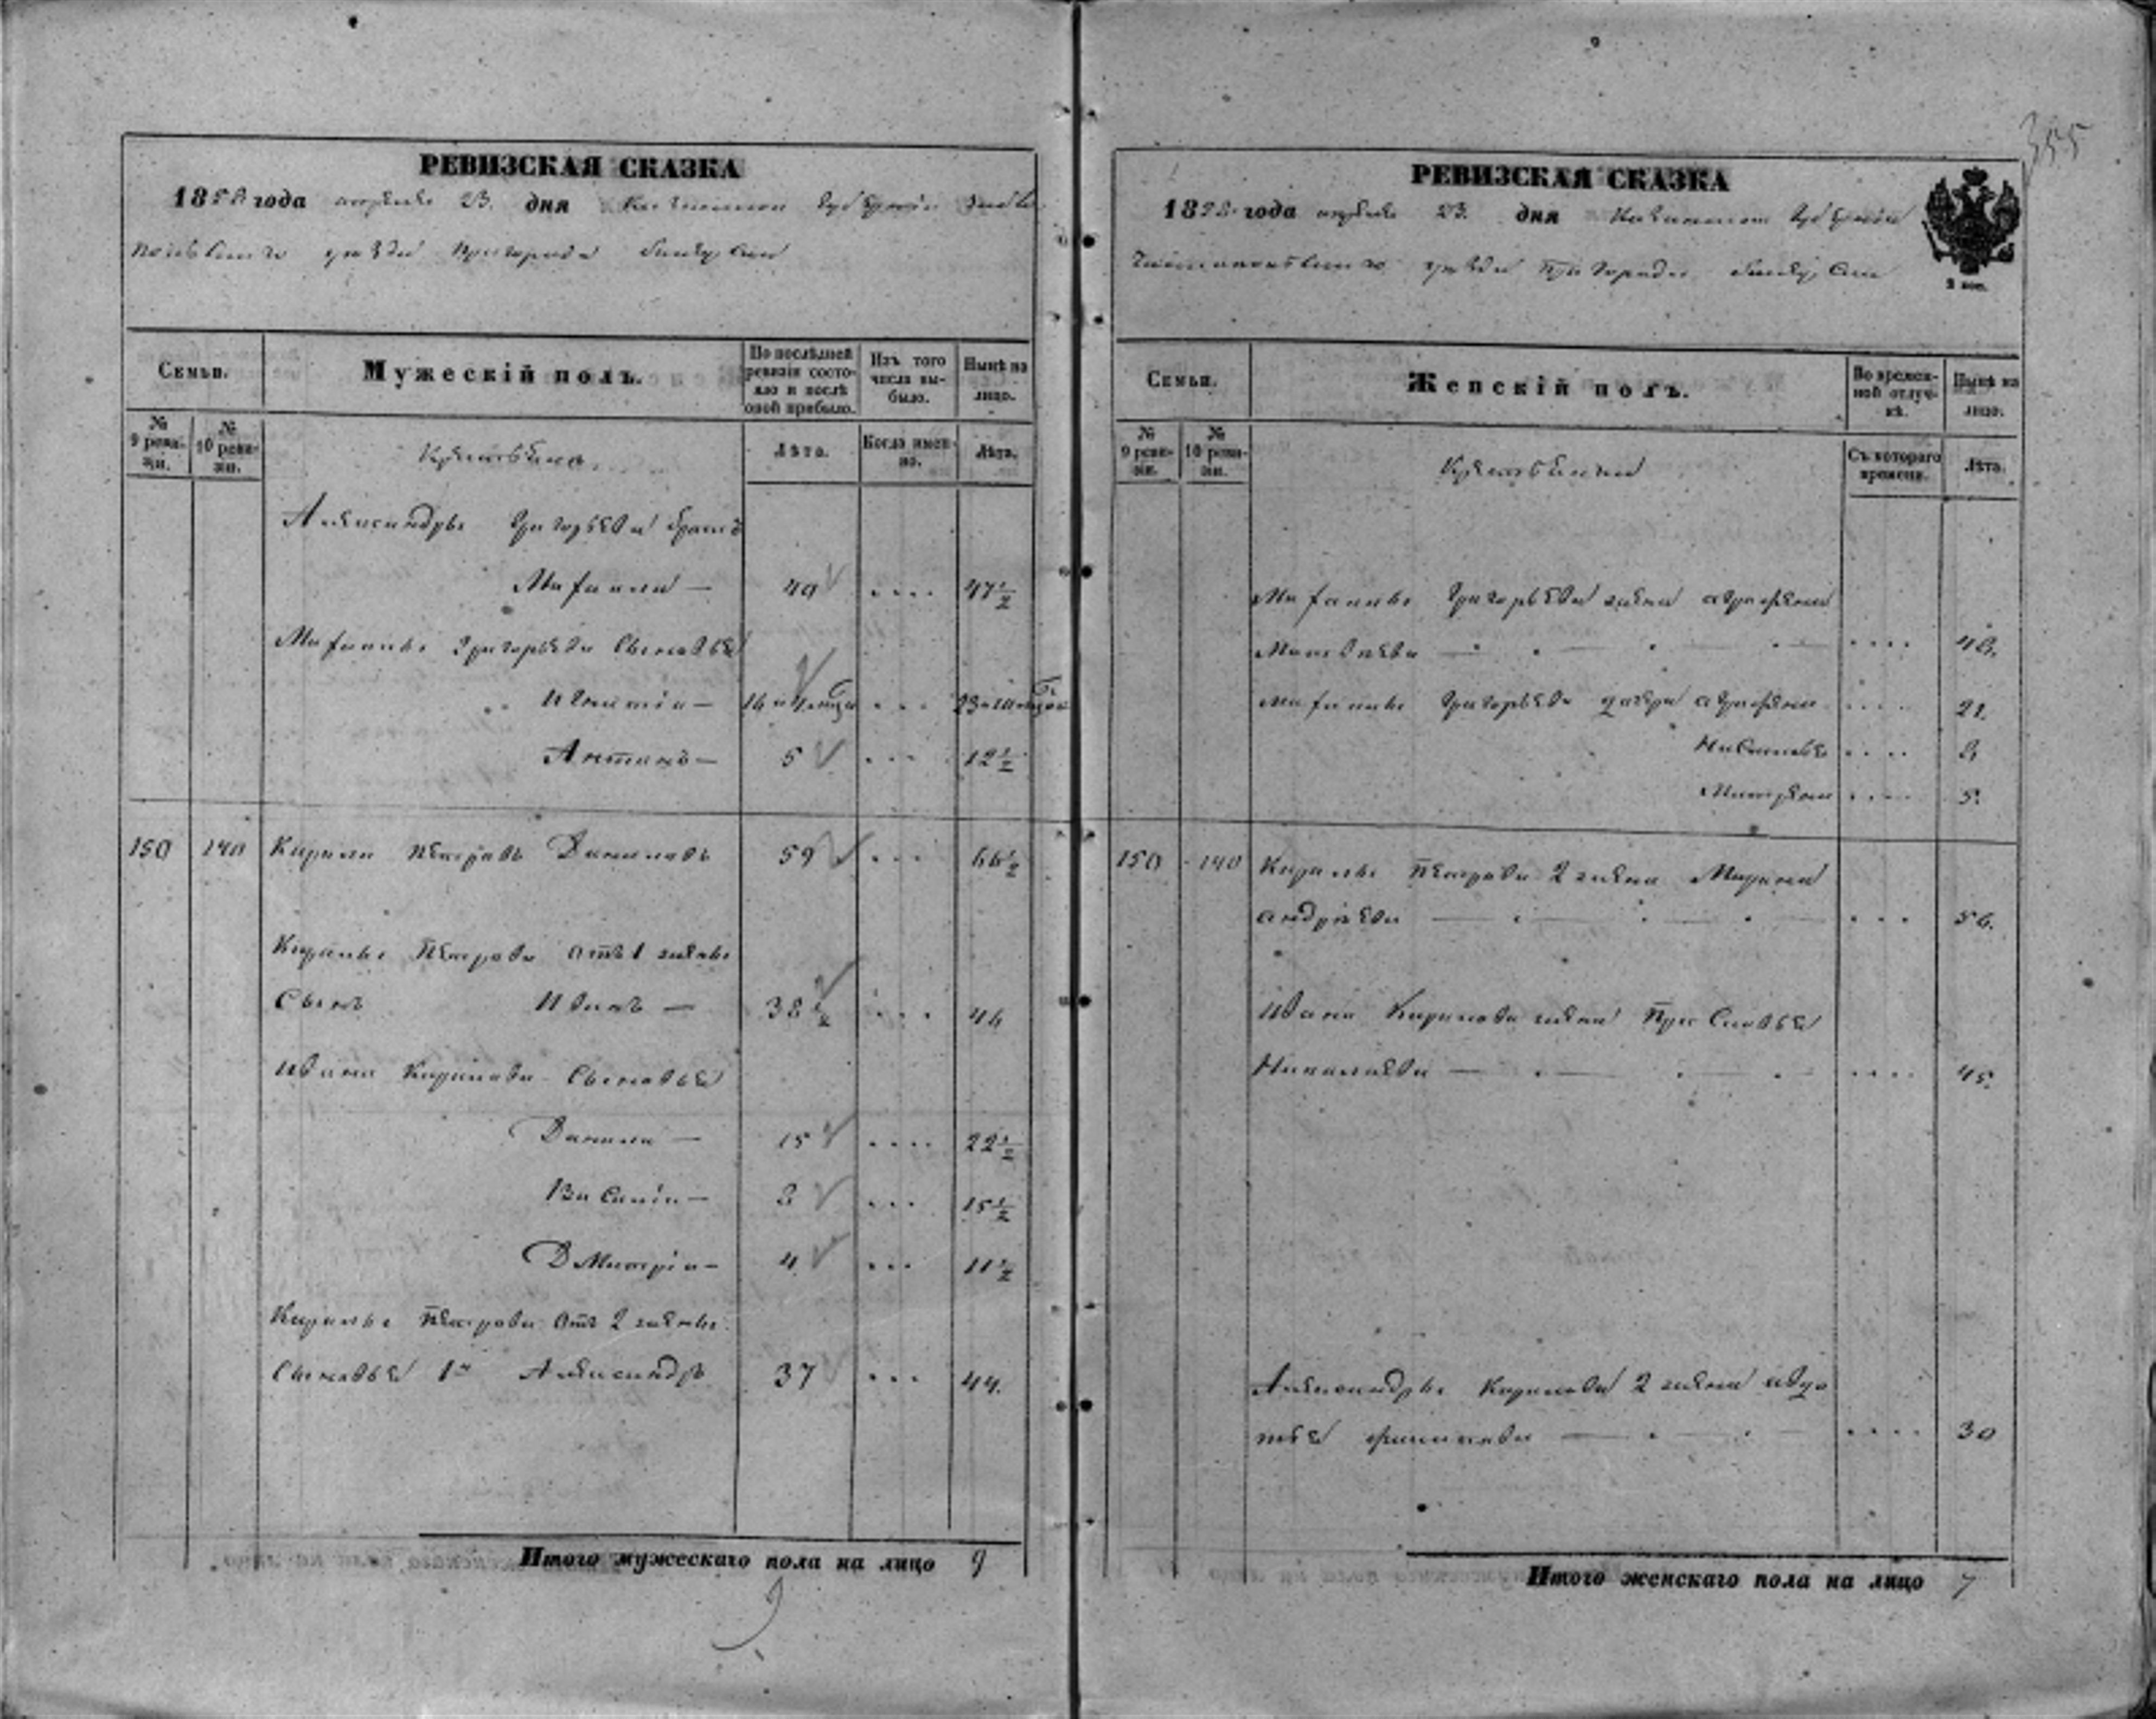 РЕВИЗСКАЯ СКАЗКА
1858 года апреля 23. дня Казанской Губернии Чисто
польскаго уезда пригорода Билярска
Семьи.
Мужескій полъ.
По послѣдней ревизіи состояло и послѣ оной прибыло.
Изъ того числа выбыло.
Нынѣ на лицо.
№ 9 ревизіи.
№ 10 ревизіи.
Лѣта.
Когда именно.
Лѣта.
Александры Григорьева братъ
Михаила — 40 .... 47½
Михаилы Григорьева сыновья
Игнатіи — 16 ... 
Антонъ — 5 ... 12½
150 140 Кирила Петровъ Даниловъ 59 ... 66½
Кирилы Петрова отъ 1 жены
Сынъ Иванъ — 38½ ... 46
Ивана Кирилова Сыновья
Данила — 15 .... 22½
Василіи — 8 ... 15½
Дмитріи — 4 ... 11½
Кирилы Петрова отъ 2 жены
Сыновья 1й Александръ 37 ... 44.
Итого мужескаго пола на лицо 9
9
355
РЕВИЗСКАЯ СКАЗКА
1858 года апреля 23. дня Казанской Губерніи
Чистопольскаго уезда пригорода Билярска
Семьи.
Женскій полъ.
Во временной отлучкѣ.
Нынѣ на лицо.
№ 9 ревизіи.
№ 10 ревизіи.
Съ котораго времени.
Лѣта.
Михаилы Григорьева жена аграфена
.... 48.
Михаилы Григорьева дочери аграфена .... 21.
....
Матрена .... 5.
150 140 Кирилы Петрова 2 жена Марина
андреева ... 56.
Ивана Кирилова жена Прасковья
Николаева — .... 45.
Александры Кирилова 2 жена авдо
тья филипова .... 30
Итого женскаго пола на лицо 7